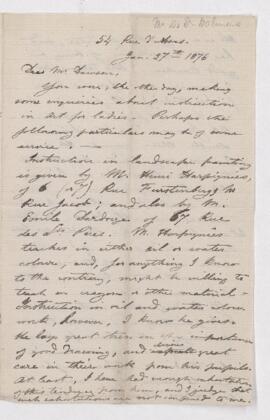 54 Rue d'Assas.
Jan. 27th 1876
Dear Mr Dawson,
You were, the other day, making
some enquiries about instruction
in Art for ladies. Perhaps the
following particulars may be of some
service: —
Instruction in landscape painting
is given by M. Henri Harpignies,
of 6 Rue Furstenberg,
Rue Jacob; and also by M.
Emile of 67 Rue
des Sts Pères. M. Harpignies
teaches in either oil or water
colour, and, for anything I know
to the contrary, might be willing to
teach in crayon or other material.
Instruction in oil and water colour
work, however, I know he gives.
He lays great stress on the importance
of good drawing, and desires great
care in their work from his pupils.
At least, I have had enough
of this tendency from him, and I judge that
such exhortations are not confined to me.